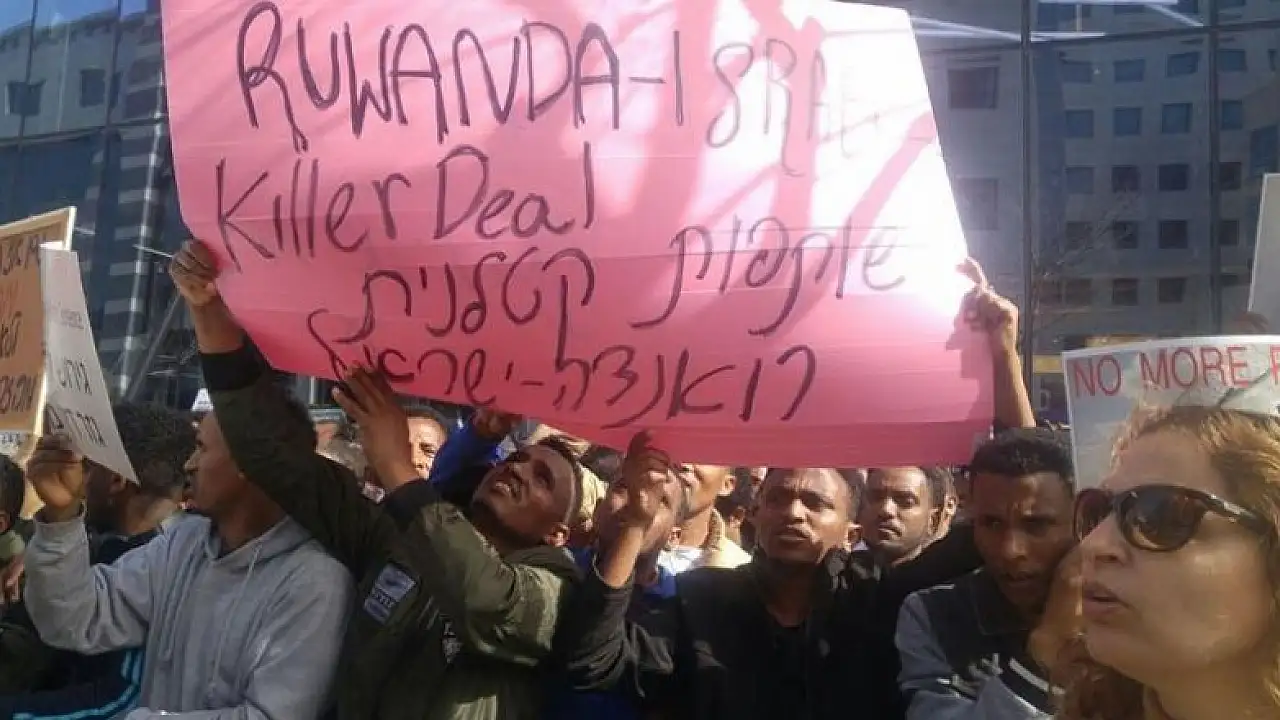 RUWANDA-ISRAEL
Killer Deal
שותפות קטלנית
רואנדה-ישראל
גירוש
NO MORE